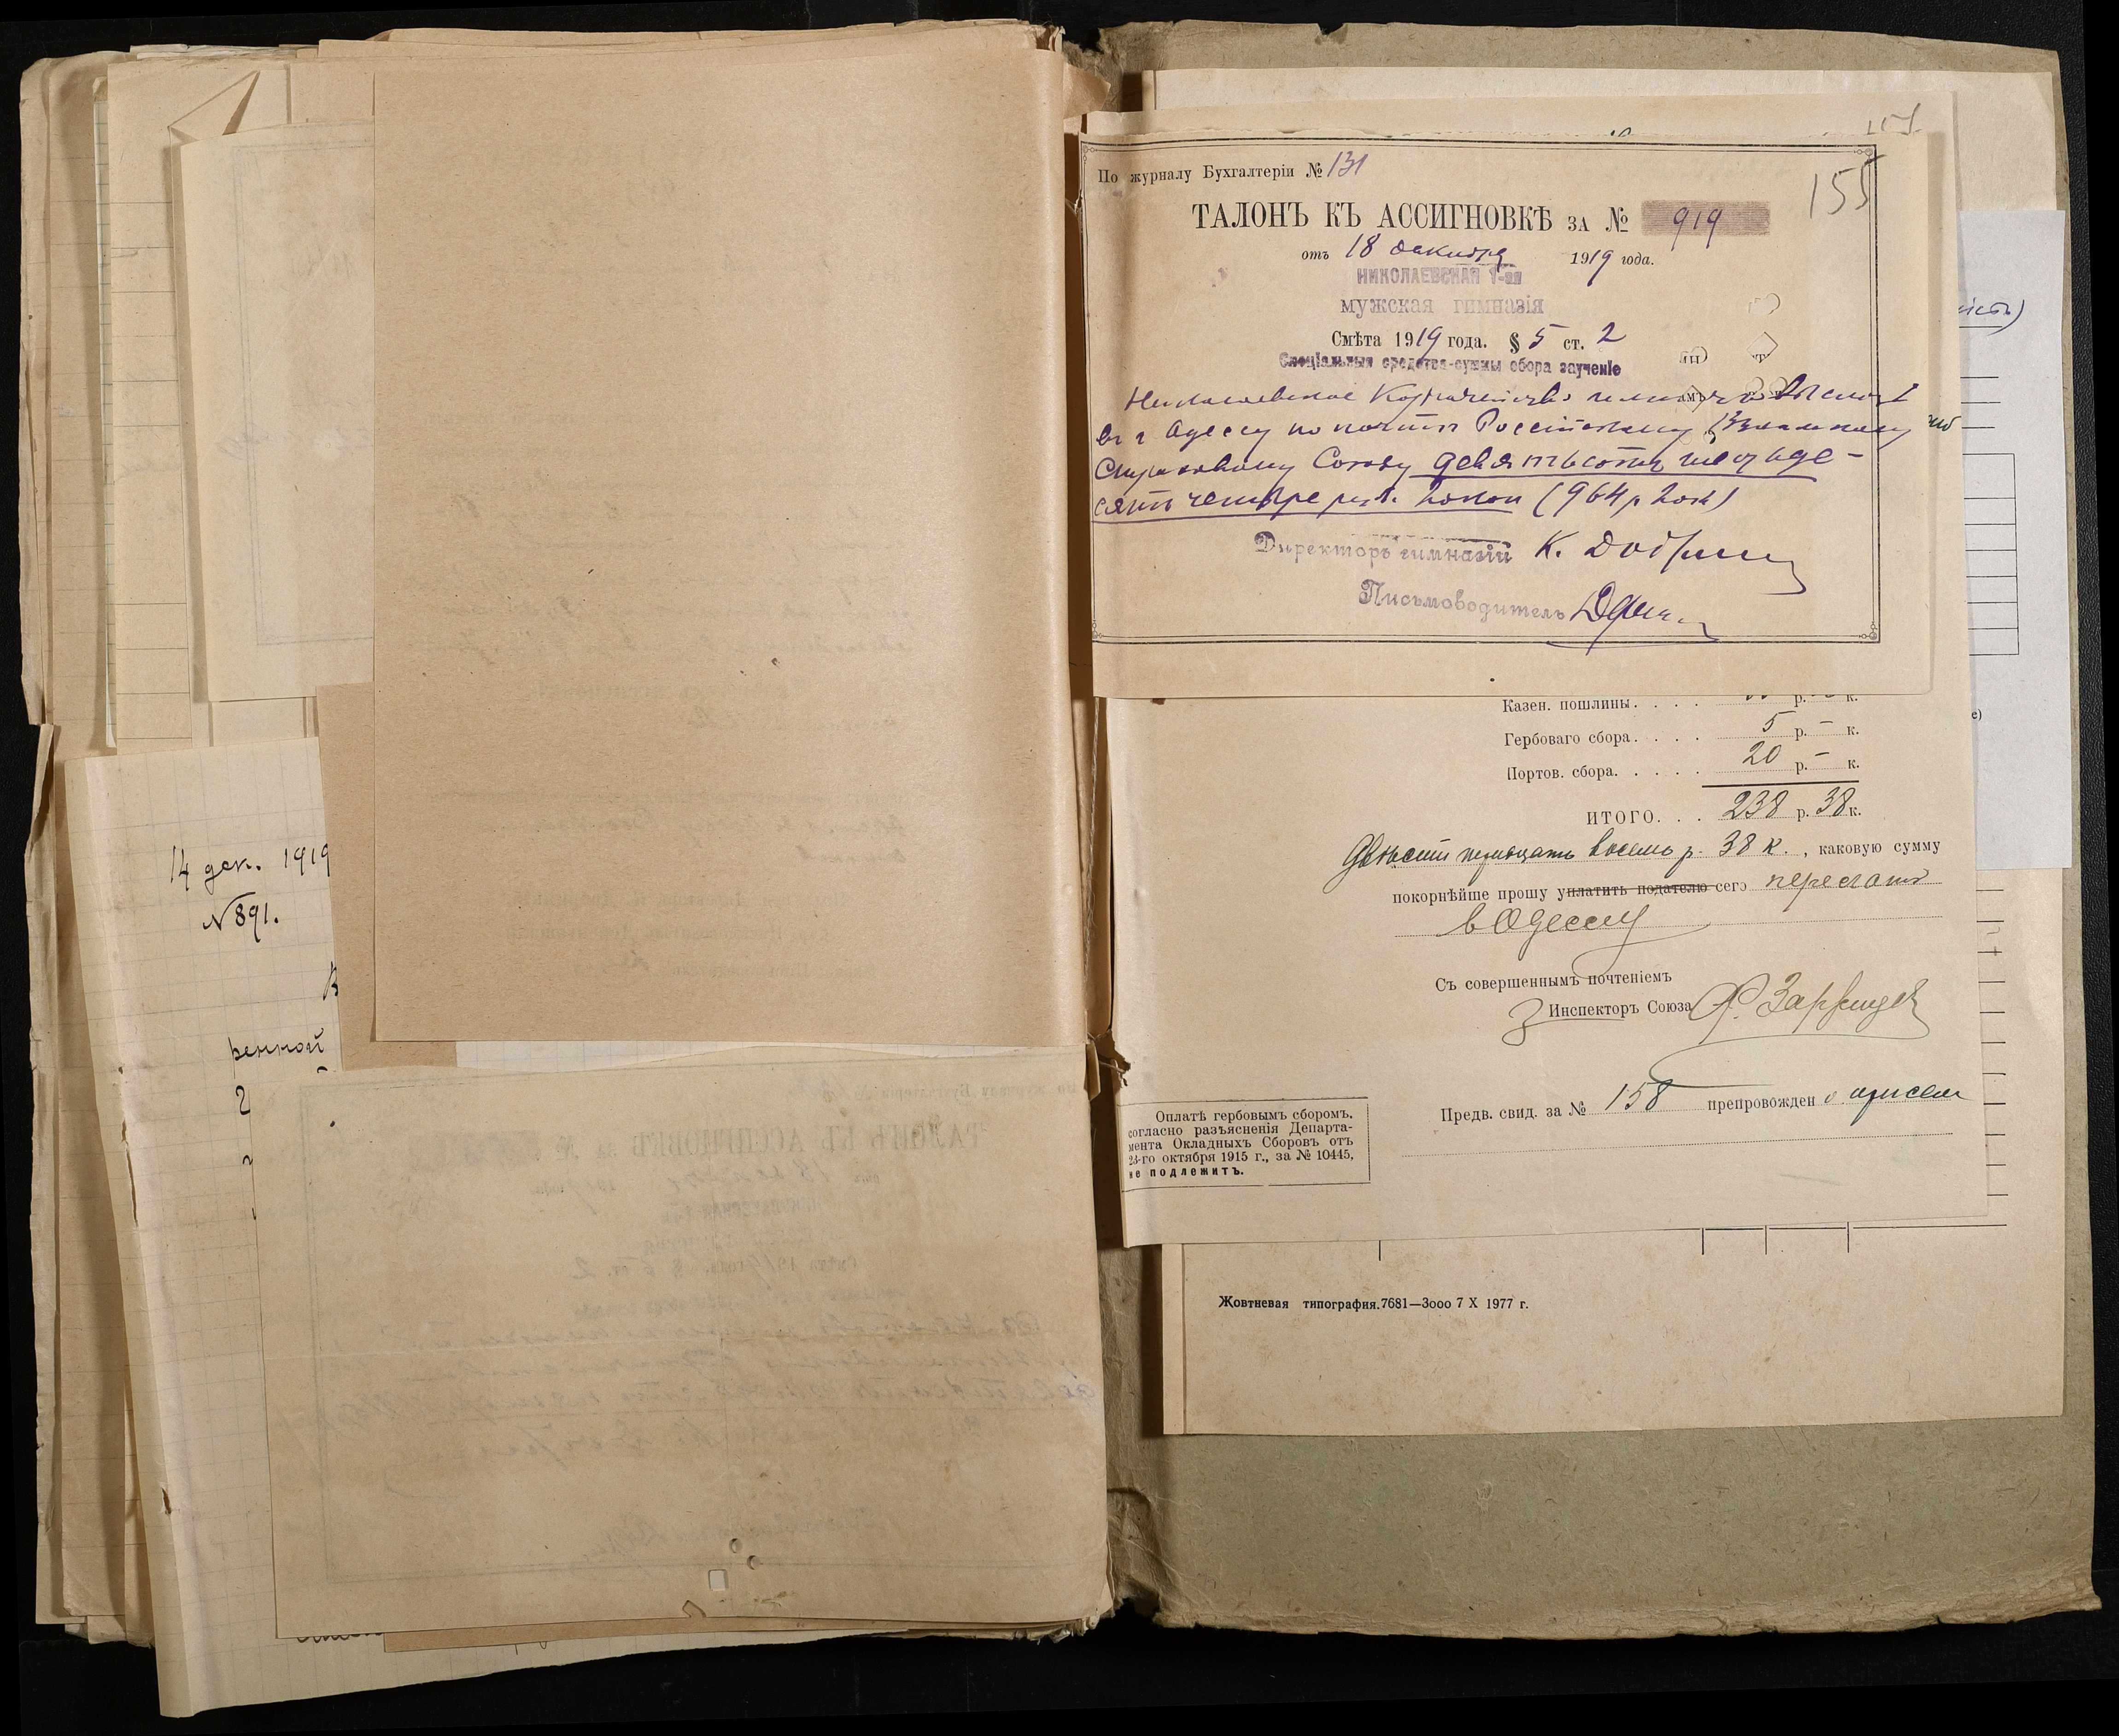 14 дек. 1919
№ 891.
ренной
2
155
По журналу Бухгалтеріи № 131
155
ТАЛОНЪ КЪ АССИГНОВКѢ ЗА № 919
отъ 18 декабря 1919 года.
НИКОЛАЕВСКАЯ 1-ая
мужская гимназія
Смѣта 1919 года. § 5 ст. 2
Спеціальныя средства-суммы сбора за ученіе
Николаевское Казначейство выслать
въ г Одессу по почтѣ Россійскому Взаимному
Страховому Союзу девятьсотъ шестьде-
сятъ четыре руб. 20 коп (964 р 20 к)
Директоръ гимназіи К.
Письмоводитель
Казен. пошлины. . . . р. – к.
Гербоваго сбора. . . . 5 р. – к.
Портов. сбора. . . . . 20 р. – к.
ИТОГО. . . 238 р. 38 к.
Двѣсти тридцать восемь р. 38 к., каковую сумму
покорнѣйше прошу уплатить подателю сего переслать
в Одессу
Съ совершеннымъ почтеніемъ
Инспекторъ Союза
Предв. свид. за № 158 препровожден
Оплатѣ гербовымъ сборомъ,
согласно разъясненія Департа-
мента Окладныхъ Сборовъ отъ
23-го октября 1915 г., за № 10445,
не подлежитъ.
Жовтневая типография. 7681—3000 7 X 1977 г.